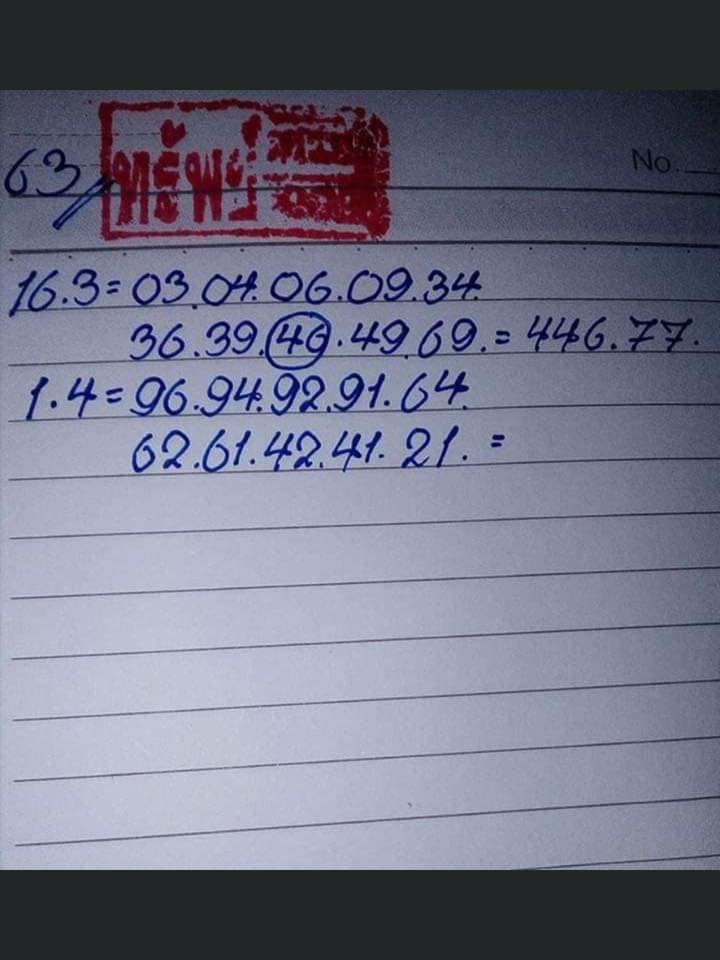 63
No.
16.3=03.04.06.09.34.
36.39.46.49.69.=446.77.
1.4=96.94.92.91.64.
62.61.42.41.21.=